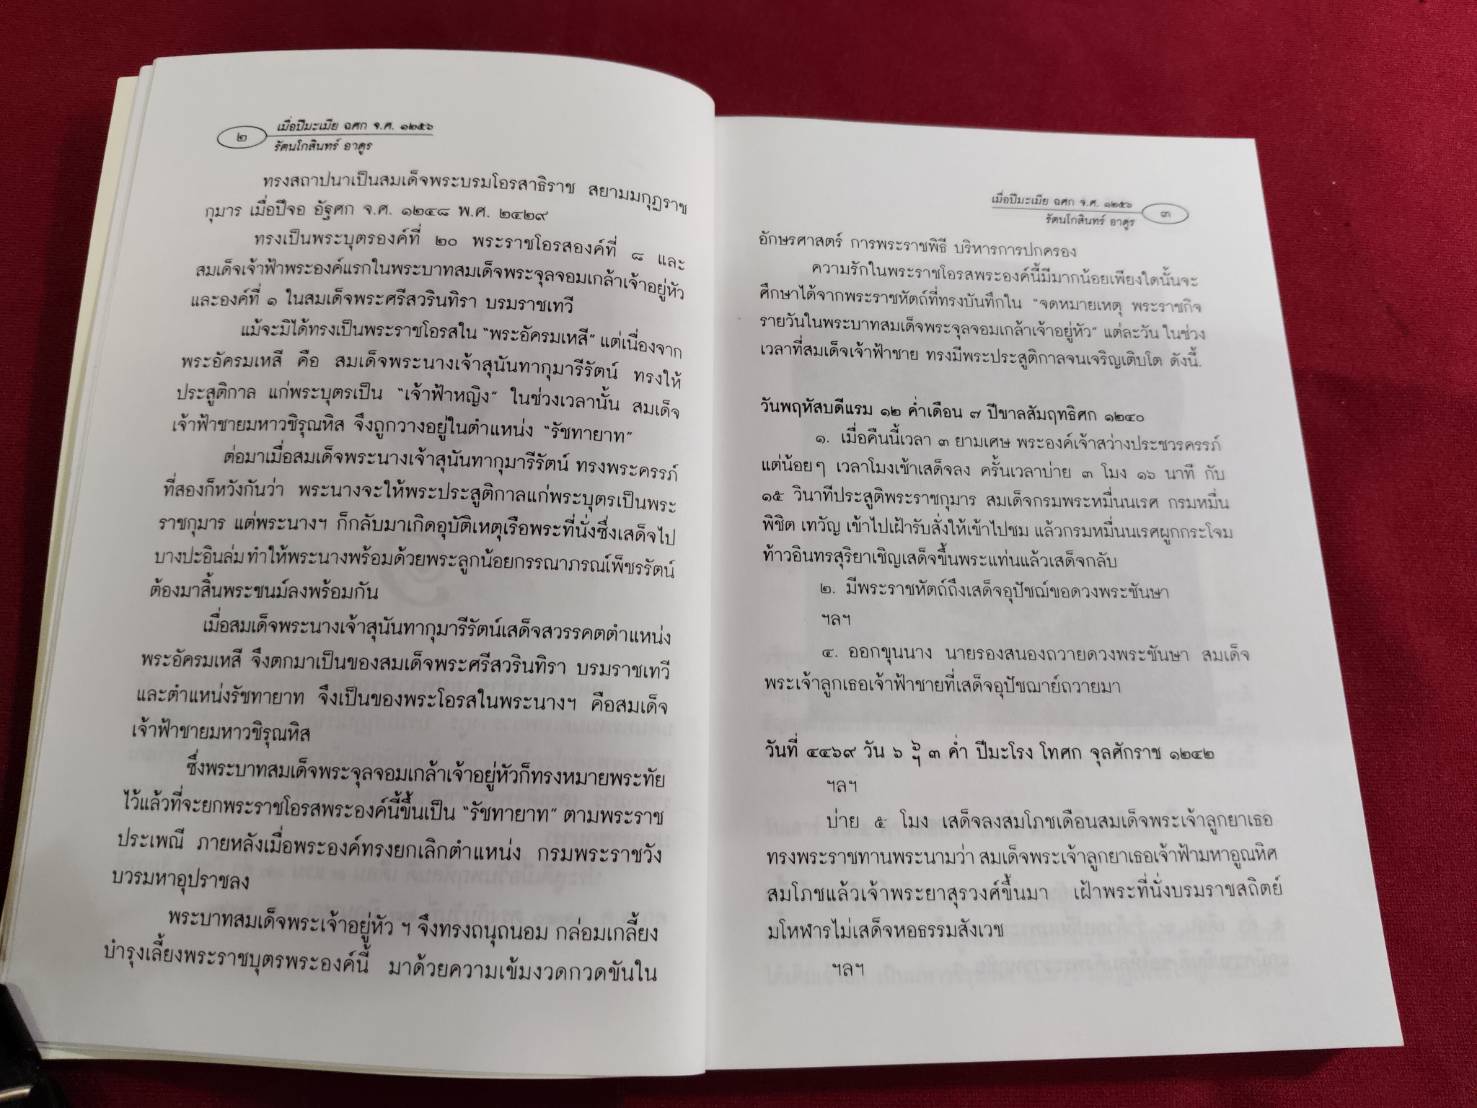 ๒
เมื่อปีมะเมีย ฉศก จ.ศ. ๑๒๕๖
รัตนโกสินทร์ อาดูร
ทรงสถาปนาเป็นสมเด็จพระบรมโอรสาธิราช สยามมกุฎราช
กุมาร เมื่อปีจอ อัฐศก จ.ศ. ๑๒๔๘ พ.ศ. ๒๔๒๙
ทรงเป็นพระบุตรองค์ที่ ๒๐ พระราชโอรสองค์ที่ ๘ และ
สมเด็จเจ้าฟ้าพระองค์แรกในพระบาทสมเด็จพระจุลจอมเกล้าเจ้าอยู่หัว
และองค์ที่ ๑ ในสมเด็จพระศรีสวรินทิรา บรมราชเทวี
แม้จะมิได้ทรงเป็นพระราชโอรสใน “พระอัครมเหสี” แต่เนื่องจาก
พระอัครมเหสี คือ สมเด็จพระนางเจ้าสุนันทากุมารีรัตน์ ทรงให้
ประสูติกาล แก่พระบุตรเป็น “เจ้าฟ้าหญิง” ในช่วงเวลานั้น สมเด็จ
เจ้าฟ้าชายมหาวชิรุณหิส จึงถูกวางอยู่ในตำแหน่ง “รัชทายาท”
ต่อมาเมื่อสมเด็จพระนางเจ้าสุนันทากุมารีรัตน์ ทรงพระครรภ์
ที่สองก็หวังกันว่า พระนางจะให้พระประสูติกาลแก่พระบุตรเป็นพระ
ราชกุมาร แต่พระนางฯ ก็กลับมาเกิดอุบัติเหตุเรือพระที่นั่งซึ่งเสด็จไป
บางปะอินล่ม ทำให้พระนางพร้อมด้วยพระลูกน้อยกรรณาภรณ์เพ็ชรรัตน์
ต้องมาสิ้นพระชนม์ลงพร้อมกัน
เมื่อสมเด็จพระนางเจ้าสุนันทากุมารีรัตน์เสด็จสวรรคตตำแหน่ง
พระอัครมเหสี จึงตกมาเป็นของสมเด็จพระศรีสวรินทิรา บรมราชเทวี
และตำแหน่งรัชทายาท จึงเป็นของพระโอรสในพระนางฯ คือสมเด็จ
เจ้าฟ้าชายมหาวชิรุณหิส
ซึ่งพระบาทสมเด็จพระจุลจอมเกล้าเจ้าอยู่หัวก็ทรงหมายพระทัย
ไว้แล้วที่จะยกพระราชโอรสพระองค์นี้ขึ้นเป็น “รัชทายาท” ตามพระราช
ประเพณี ภายหลังเมื่อพระองค์ทรงยกเลิกตำแหน่ง กรมพระราชวัง
บวรมหาอุปราชลง
พระบาทสมเด็จพระเจ้าอยู่หัว ฯ จึงทรงถนุถนอม กล่อมเกลี้ยง
บำรุงเลี้ยงพระราชบุตรพระองค์นี้ มาด้วยความเข้มงวดกวดขันใน
เมื่อปีมะเมีย ฉศก จ.ศ. ๑๒๕๖
รัตนโกสินทร์ อาดูร
๓
อักษรศาสตร์ การพระราชพิธี บริหารการปกครอง
ความรักในพระราชโอรสพระองค์นี้มีมากน้อยเพียงใดนั้นจะ
ศึกษาได้จากพระราชหัตถ์ที่ทรงบันทึกใน “จดหมายเหตุ พระราชกิจ
รายวันในพระบาทสมเด็จพระจุลจอมเกล้าเจ้าอยู่หัว” แต่ละวัน ในช่วง
เวลาที่สมเด็จเจ้าฟ้าชาย ทรงมีพระประสูติกาลจนเจริญเติบโต ดังนี้.
วันพฤหัสบดีแรม ๑๒ ค่ำเดือน ๗ ปีขาลสัมฤทธิศก ๑๒๔๐
๑. เมื่อคืนนี้เวลา ๓ ยามเศษ พระองค์เจ้าสว่างประชวรครรภ์
แต่น้อยๆ เวลาโมงเช้าเสด็จลง ครั้นเวลาบ่าย ๓ โมง ๑๖ นาที กับ
๑๕ วินาทีประสูติพระราชกุมาร สมเด็จกรมพระหมื่นนเรศ กรมหมื่น
พิชิต เทวัญ เข้าไปเฝ้ารับสั่งให้เข้าไปชม แล้วกรมหมื่นนเรศผูกกระโจม
ท้าวอินทรสุริยาเชิญเสด็จขึ้นพระแท่นแล้วเสด็จกลับ
๒. มีพระราชหัตถ์ถึงเสด็จอุปัชฌ์ขอดวงพระชันษา
ฯลฯ
๔. ออกขุนนาง นายรองสนองถวายดวงพระชันษา สมเด็จ
พระเจ้าลูกเธอเจ้าฟ้าชายที่เสด็จอุปัชฌาย์ถวายมา
วันที่ ๔๔๖๙ วัน ๖ ๖ ฯ ๓ ค่ำ ปีมะโรง โทศก จุลศักราช ๑๒๔๒
ฯลฯ
บ่าย ๕ โมง เสด็จลงสมโภชเดือนสมเด็จพระเจ้าลูกยาเธอ
ทรงพระราชทานพระนามว่า สมเด็จพระเจ้าลูกยาเธอเจ้าฟ้ามหาอูณหิศ
สมโภชแล้วเจ้าพระยาสุรวงศ์ขึ้นมา เฝ้าพระที่นั่งบรมราชสถิตย์
มโหฬารไม่เสด็จหอธรรมสังเวช
ฯลฯ